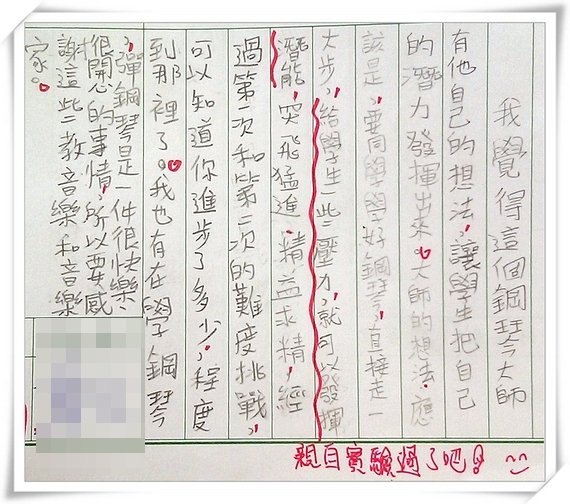 我覺得這個鋼琴大師
有他自己的想法，讓學生把自己
的潛力發揮出來。大師的想法，應
該是，要同學學好鋼琴，直接走一
大步，給學生一些壓力，就可以發揮
潛能，突飛猛進，精益求精，經
過第一次和第二次的難度挑戰，
可以知道你進步了多少，程度
到那裡了。我也有在學鋼琴
，彈鋼琴是一件很快樂、
很開心的事情，所以要感
謝這些教音樂和音樂
家。
親自實驗過了吧！